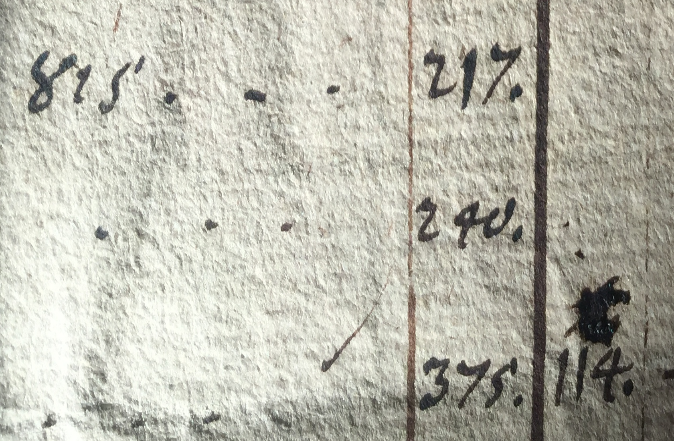 825 . . . 217.
. . . 240.
. . . 375. 114.